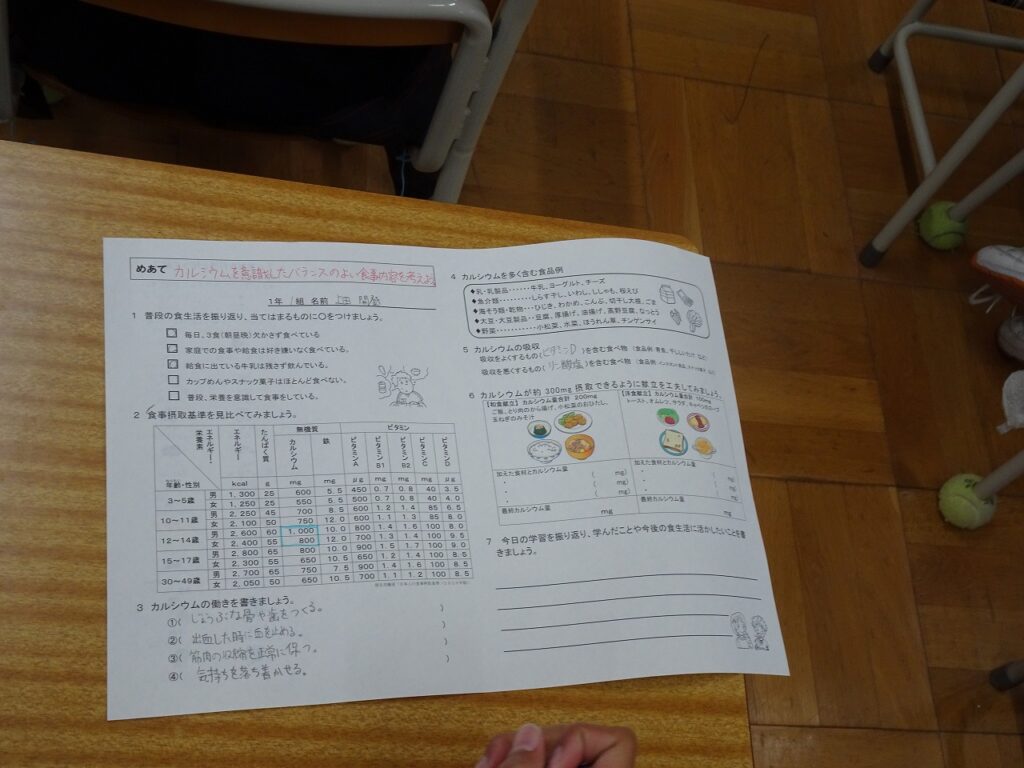 めあて カルシウムを意識したバランスのよい食事内容を考えよう
1年 1組 名前 上田
1 普段の食生活を振り返り、当てはまるものに〇をつけましょう。
毎日、3食(朝昼晩)欠かさず食べている
家庭での食事や給食は好き嫌いなく食べている。
給食に出ている牛乳は残さず飲んでいる。
カップめんやスナック菓子はほとんど食べない。
普段、栄養を意識して食事をしている。
2 食事摂取基準を見比べてみましょう。
エネルギー・栄養素 エネルギー たんぱく質 無機質 ビタミン
カルシウム 鉄 ビタミンA ビタミンB1 ビタミンB2 ビタミンC ビタミンD
年齢・性別 kcal g mg mg μg mg mg mg μg
3～5歳 男 1,300 25 600 5.5 450 0.7 0.8 40 3.5
女 1,250 25 550 5.5 500 0.7 0.8 40 4.0
10～11歳 男 2,250 45 700 8.5 600 1.2 1.4 85 6.5
女 2,100 50 750 12.0 600 1.1 1.3 85 8.0
12～14歳 男 2,600 60 1,000 10.0 800 1.4 1.6 100 8.0
女 2,400 55 800 12.0 700 1.3 1.4 100 9.5
15～17歳 男 2,800 65 800 10.0 900 1.5 1.7 100 9.0
女 2,300 55 650 10.5 650 1.2 1.4 100 8.5
30～49歳 男 2,700 65 750 7.5 900 1.4 1.6 100 8.5
女 2,050 50 650 10.5 700 1.1 1.2 100 8.5
3 カルシウムの働きを書きましょう。
①( じょうぶな骨や歯をつくる。 )
②( 出血した時に血を止める。 )
③( 筋肉の収縮を正常に保つ。 )
④( 気持ちを落ち着かせる。
4 カルシウムを多く含む食品例
◆乳・乳製品・・・・・・・・牛乳、ヨーグルト、チーズ
◆魚介類・・・・・・・・しらす干し、いわし、ししゃも、桜えび
◆海そう類・乾物・・・ひじき、わかめ、こんぶ、切干し大根、ごま
◆大豆・大豆製品・・豆腐、厚揚げ、油揚げ、高野豆腐、なっとう
◆野菜・・・・・・・・・・・小松菜、水菜、ほうれん草、チンゲンサイ
5 カルシウムの吸収
吸収をよくするもの(ビタミンD)を含む食べ物
吸収を悪くするもの(リン酸塩)を含む食べ物
6 カルシウムが約 300mg 摂取できるように献立を工夫してみましょう。
【和食献立】カルシウム量合計 200mg
ご飯、とり肉のから揚げ、小松菜のおひたし、
玉ねぎのみそ汁
【洋食献立】カルシウム量合計 100mg
トースト、オムレツ、サラダ、キャベツのスープ
加えた食材とカルシウム量
・ ( mg)
・ ( mg)
・ ( mg)
最終カルシウム量 mg
加えた食材とカルシウム量
・ ( mg)
・ ( mg)
・ ( mg)
最終カルシウム量 mg
7 今日の学習を振り返り、学んだことや今後の食生活に活かしたいことを書
きましょう。